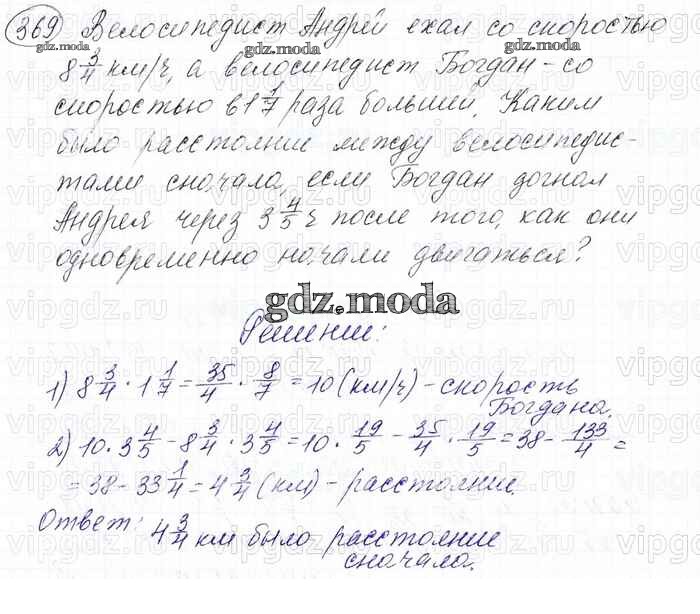 369) Велосипедист Андрей ехал со скоростью
8 3/4 км/ч, а велосипедист Богдан – со
скоростью в 1 1/7 раза большей. Каким
было расстояние между велосипедис-
тами сначала, если Богдан догнал
Андрея через 3 4/5 ч после того, как они
одновременно начали двигаться?
gdz.moda
Решение:
1) 8 3/4 · 1 1/7 = 35/4 · 8/7 = 10 (км/ч) – скорость
Богдана.
2) 10 · 3 4/5 – 8 3/4 · 3 4/5 = 10 · 19/5 – 35/4 · 19/5 = 38 – 133/4 =
= 38 – 33 1/4 = 4 3/4 (км) – расстояние.
Ответ: 4 3/4 км было расстояние
сначала.